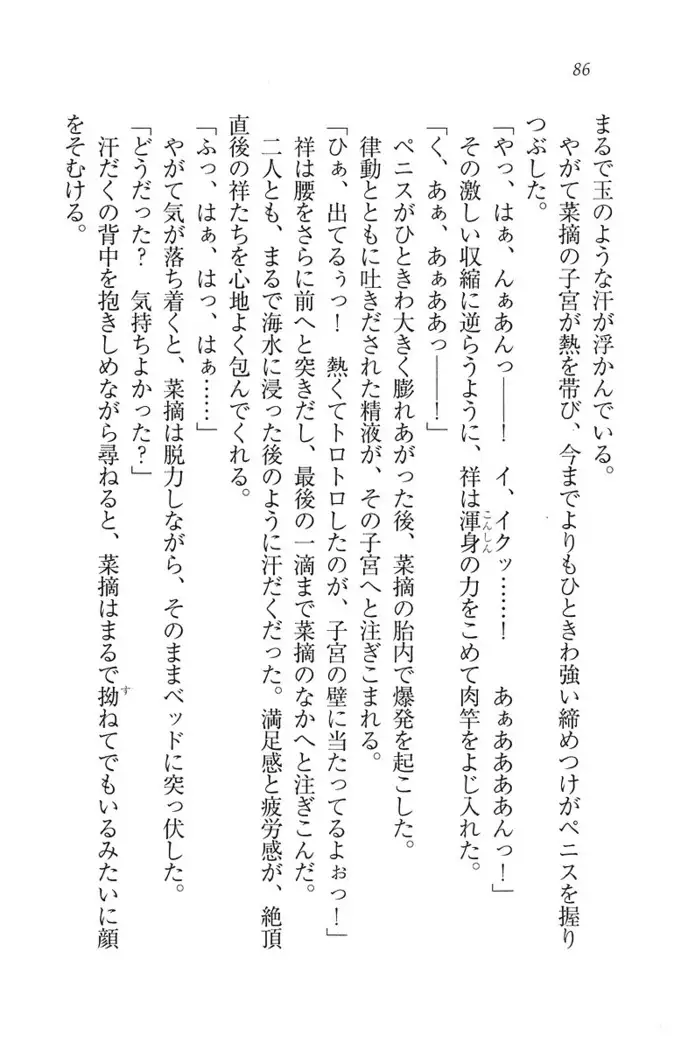 86
まるで玉のような汗が浮かんでいる。
やがて菜摘の子宮が熱を帯び、今までよりもひときわ強い締めつけがペニスを握り
つぶした。
「やっ、はぁ、んぁあんっ――！　イ、イクッ……！　あぁああああんっ！」
その激しい収縮に逆らうように、祥は渾身の力をこめて肉竿をよじ入れた。
こんしん
「く、あぁ、あぁああっ――！」
ペニスがひときわ大きく膨れあがった後、菜摘の胎内で爆発を起こした。
律動とともに吐きだされた精液が、その子宮へと注ぎこまれる。
「ひぁ、出てるぅっ！　熱くてトロトロしたのが、子宮の壁に当たってるよぉっ！」
祥は腰をさらに前へと突きだし、最後の一滴まで菜摘のなかへと注ぎこんだ。
二人とも、まるで海水に浸った後のように汗だくだった。満足感と疲労感が、絶頂
直後の祥たちを心地よく包んでくれる。
「ふっ、はぁ、はっ、はぁ……」
やがて気が落ち着くと、菜摘は脱力しながら、そのままベッドに突っ伏した。
「どうだった？　気持ちよかった？」
汗だくの背中を抱きしめながら尋ねると、菜摘はまるで拗ねてでもいるみたいに顔
す
をそむける。